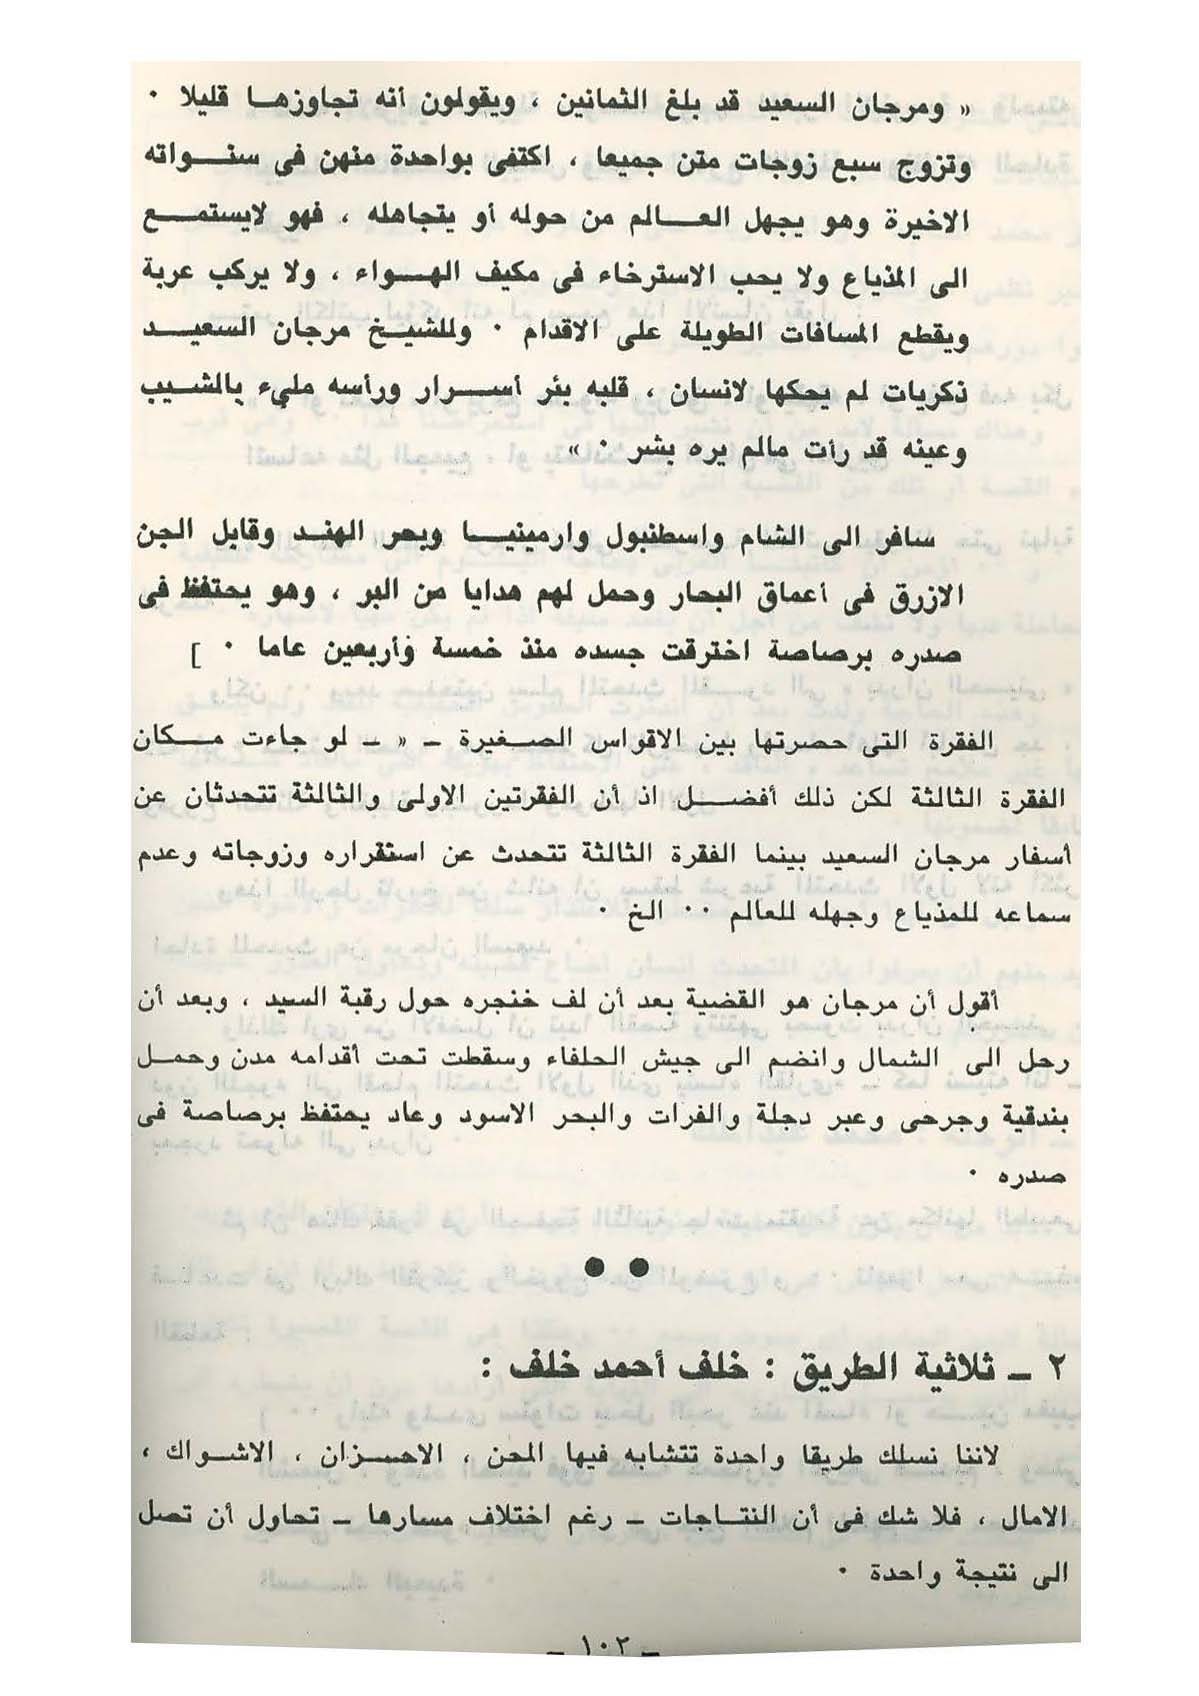 « ومرجان السعيد قد بلغ الثمانين ، ويقولون أنه تجاوزها قليلا ٠
وتزوج سبع زوجات متن جميعا ، اكتفى بواحدة منهن فى سنواته
الاخيرة وهو يجهل العالم من حوله أو يتجاهله ، فهو لايستمع
الى المذياع ولا يحب الاسترخاء فى مكيف الهواء ، ولا يركب عربة
ويقطع المسافات الطويلة على الاقدام ٠ وللشيخ مرجان السعيد
ذكريات لم يحكها لانسان ، قلبه بئر أسرار ورأسه مليء بالمشيب
وعينه قد رأت مالم يره بشر ٠ »
سافر الى الشام واسطنبول وارمينيا وبحر الهند وقابل الجن
الازرق فى أعماق البحار وحمل لهم هدايا من البر ، وهو يحتفظ فى
صدره برصاصة اخترقت جسده منذ خمسة وأربعين عاما ٠ ]
الفقرة التى حصرتها بين الاقواس الصغيرة – « – لو جاءت مكان
الفقرة الثالثة لكن ذلك أفضل اذ أن الفقرتين الاولى والثالثة تتحدثان عن
أسفار مرجان السعيد بينما الفقرة الثالثة تتحدث عن استقراره وزوجاته وعدم
سماعه للمذياع وجهله للعالم ٠٠ الخ ٠
أقول أن مرجان هو القضية بعد أن لف خنجره حول رقبة السيد ، وبعد أن
رحل الى الشمال وانضم الى جيش الحلفاء وسقطت تحت أقدامه مدن وحمل
بندقية وجرحى وعبر دجلة والفرات والبحر الاسود وعاد يحتفظ برصاصة فى
صدره ٠
● ●
٢ – ثلاثية الطريق : خلف أحمد خلف :
لاننا نسلك طريقا واحدة تتشابه فيها المحن ، الاحزان ، الاشواك ،
الامال ، فلا شك فى أن النتاجات – رغم اختلاف مسارها – تحاول أن تصل
الى نتيجة واحدة ٠
– ١٠٢ –